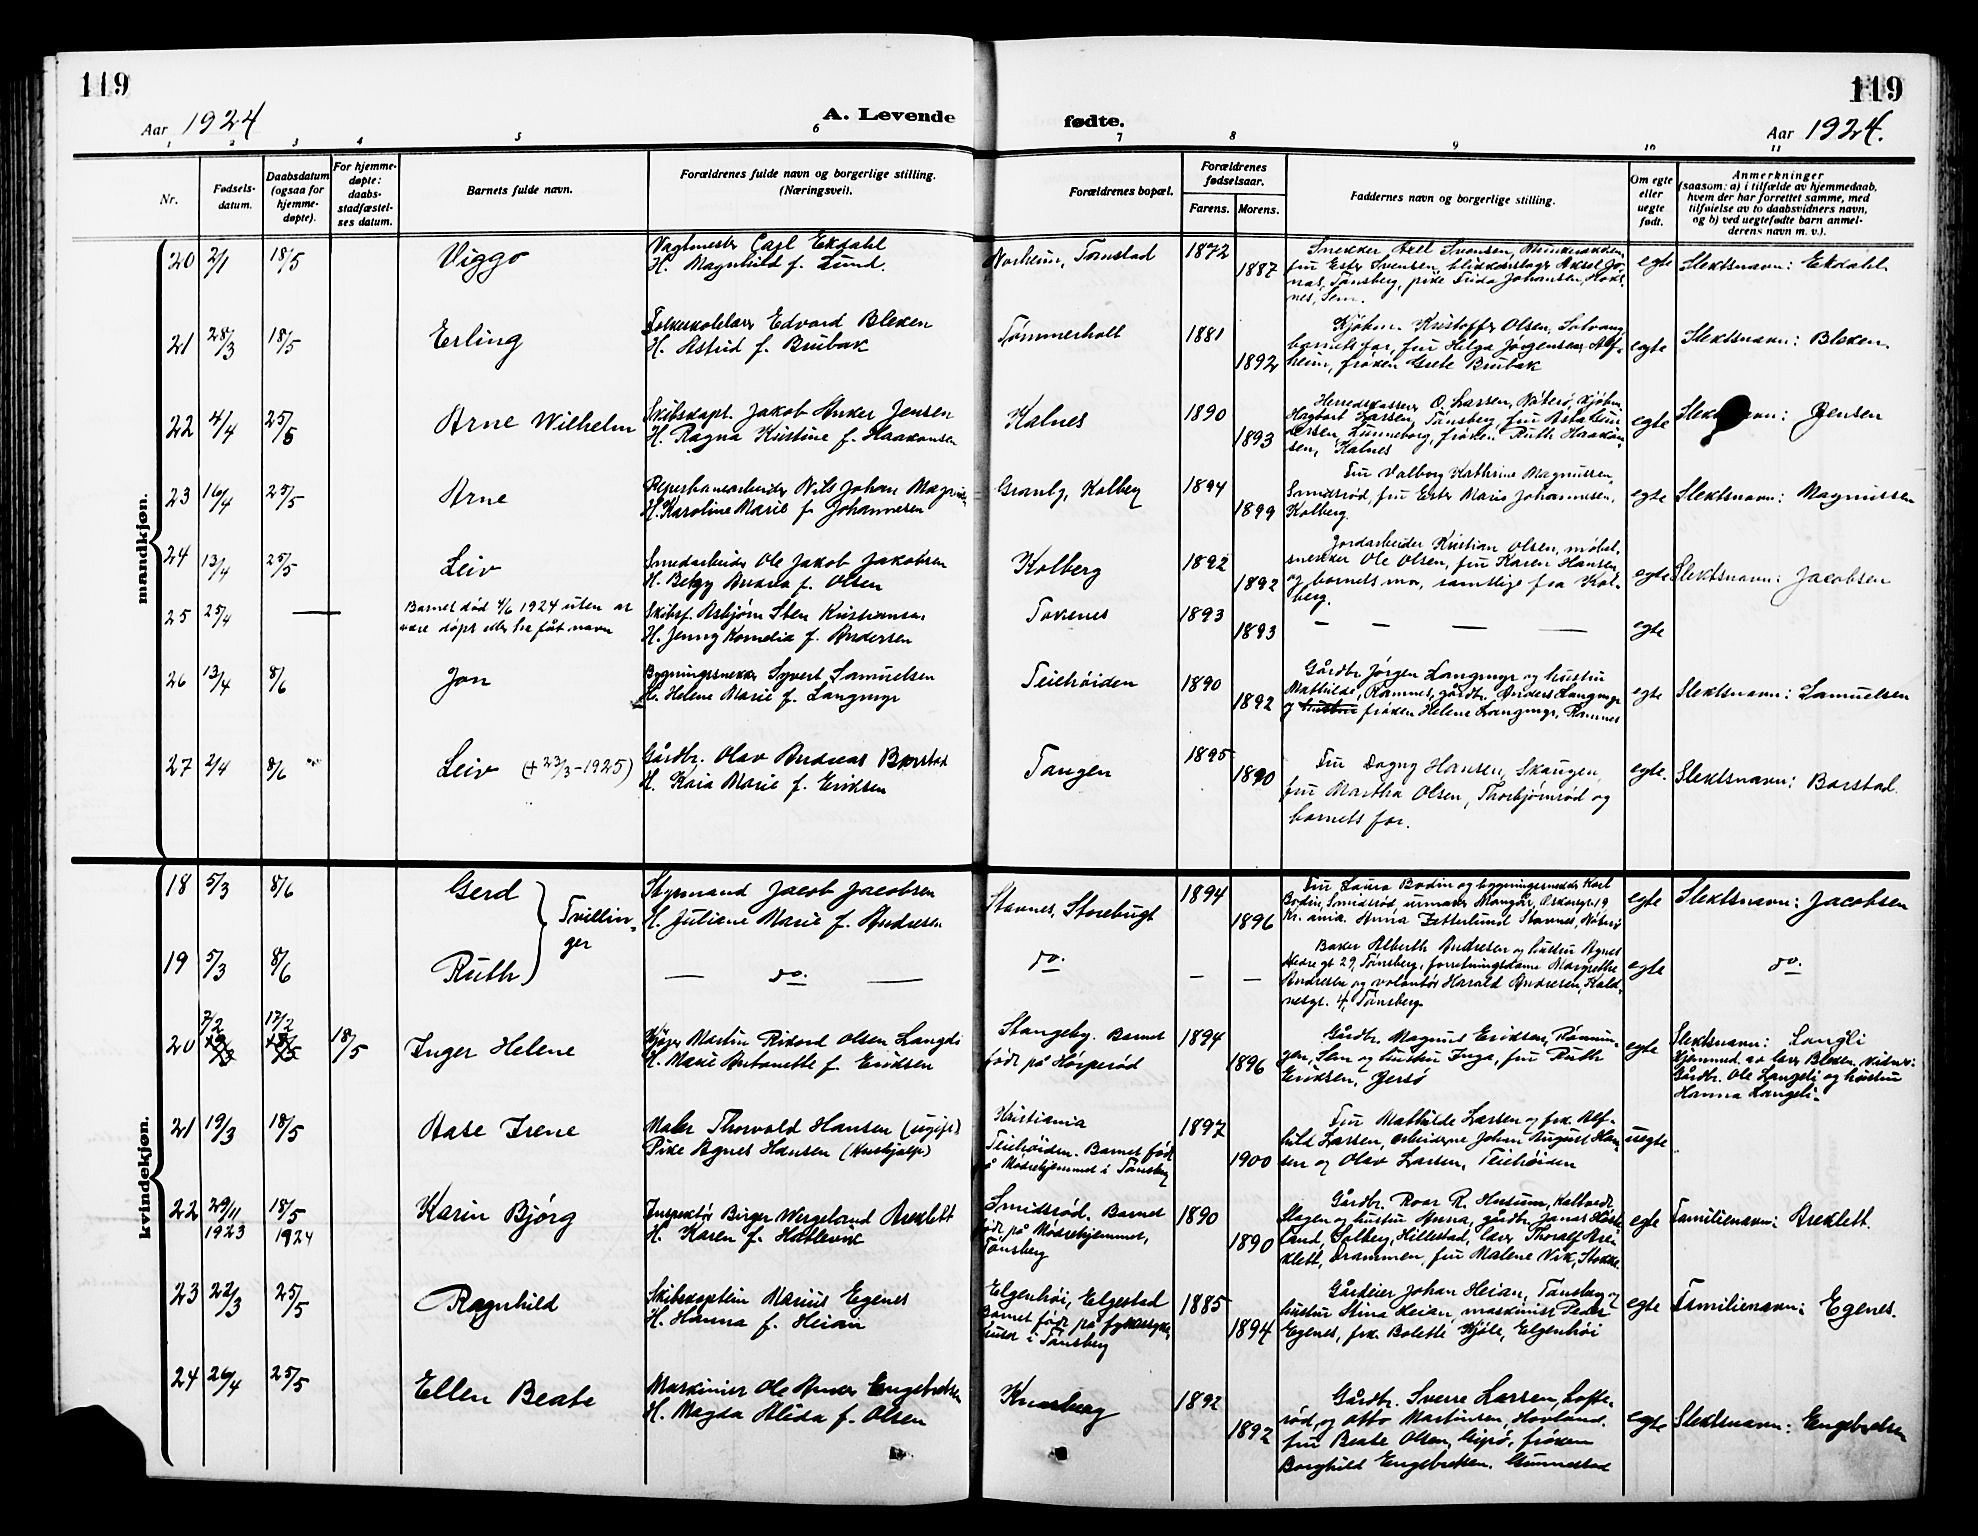 119
119
Aar 1924
A. Levende
fødte.
Aar 1924.
1 2 3 4 5 6 7 8 9 10 11
Nr.
Fødsels-
datum.
Daabsdatum
(ogsaa for
hjemme-
døpte).
For hjemme-
døpte:
daabs-
stadfæstel-
ses datum.
Barnets fulde navn.
Forældrenes fulde navn og borgerlige stilling.
(Næringsvei).
Forældrenes bopæl.
Forældrenes
fødselsaar.
Farens. Morens.
Faddernes navn og borgerlige stilling.
Om egte
eller
uegte
født.
Anmerkninger
(saasom: a) i tilfælde av hjemmedaab,
hvem der har forrettet samme, med
tilføielse av to daabsvidners navn,
og b) ved uegtefødte barn anmel-
derens navn m. v.).
mandkjøn.
20 2/1 18/5 Viggo
Vagtmester Carl Ekdahl
H. Magnhild f. Lund.
Norheim, Tømstad
1872
1887
Snekker Axel Svensen,
fru Ester Svensen, blikkenslager Aksel Jo-
nas, Tønsberg, pike Frida Johansen,
nes, Sem.
egte
Slektsnavn: Ekdahl.
21 28/3 18/5 Erling
Folkeskolelærer Edvard Bleken
H. Astrid f. Brubak
Tømmerholt
1881
1892
Kjøbm. Kristoffer Olsen, Solvang,
barnets far, fru Helga Jørgensen, Alf-
heim, frøken Grete Brubak
egte
Slektsnavn: Bleken.
22 4/4 25/5 Arne Wilhelm
Skibskapt. Jakob Anker Jensen
H. Ragna Kristine f. Haakonsen
Kalnes
1890
1893
Herredskasserer O. Larsen, Nøterø, kjøbm.
Hagbart Larsen, Tønsberg, fru Asta Gun-
dersen, Lunneborg, frøken Ruth Haakon-
sen, Kalnes
egte
Slektsnavn: Jensen
23 16/4 25/5 Arne
Reperbanearbeider Nils Johan Magnus-
H. Karoline Marie f. Johannesen
Granly, Kolberg
1894
1899
Fru Valborg Kathrine Magnussen,
Smidsrød, fru Ester Marie Johannesen,
Kolberg.
egte
Slektsnavn: Magnussen
24 13/4 25/5 Leiv
Smedarbeider Ole Jakob Jakobsen
H. Betzy Andrea f. Olsen
Kolberg
1892
1892
Jordarbeider Kristian Olsen, møbel-
snekker Ole Olsen, fru Karen Hansen,
og barnets mor, samtlige fra Kol-
berg.
egte
Slektsnavn: Jacobsen
25 25/4 —
Barnet død 4/6 1924 uten at
være døpt eller ha fåt navn
Skibsf. Asbjørn Sten Kristiansen
H. Jenny Kornelia f. Andersen
Torenes
1893
1893
— — — —
egte
26 13/4 8/6 Jon
Bygningssnekker Syvert Samuelsen
H. Helene Marie f. Langmyr
Teiehøiden
1890
1892
Gårdbr. Jørgen Langmyr og hustru
Mathilde, Ramnes, gårdbr. Anders Langmyr
og hustru frøken Helene Langmyr, Ramnes
egte
Slektsnavn: Samuelsen
27 2/4 8/6 Leiv (+ 23/3-1925)
Gårdbr. Olav Andreas Borstad
H. Kaia Marie f. Eriksen
Tangen
1895
1890
Fru Dagny Hansen, Skaugen,
fru Martha Olsen, Thorbjørnrød og
barnets far.
egte.
Slektsnavn: Borstad.
kvindekjøn.
18 5/3 8/6 Gerd
Tvillin-
ger
Styrmand Jacob Jacobsen
H. Juliane Marie f. Andresen
Stavnes, Storebugt
1894
1896
Fru Laura Bodin og bygningssnekker Karl
Bodin, Smidsrød, urmaker Mangår, Oskarsgt. 19
Kr.ania. Anna Zetterlund Stavnes, Nøterø
egte
Slektsnavn: Jacobsen
19 5/3 8/6 Ruth
— do. —
do.
— —
Baker Alberth Andresen og hustru Agnes
Nedre gt 29, Tønsberg, forretningsdame Margrethe
Andresen og volontør Harald Andresen, Kald-
nesgt. 4, Tønsberg.
egte
do.
20 7/2 17/2 18/5 Inger Helene
Kjøper Martin Rikard Olsen Langeli
H. Marie Antonette f. Eriksen
Stangeby. Barnet
født på Hørperød
1894
1896
Gårdbr. Magnus Eriksen, Rønnin-
gen, Sem og hustru Inga, fru Ruth
Eriksen, Jersø
egte
Slektsnavn: Langli
Hjemmed. av lærer Bleken. Vidner:
Gårdbr. Ole Langeli og hustru
Hanna Langeli.
21 19/3 18/5 Aase Irene
Maler Thorvald Hansen (ugift)
Pike Agnes Hansen (Hushjælp)
Kristiania
Teiehøiden. Barnet født
på Mødrehjemmet i Tønsberg
1897
1900
Fru Mathilde Larsen og frk. Alf-
hild Larsen, arbeiderne Johan August Han-
sen og Olav Larsen, Teiehøiden
uegte
22 29/11 1923 18/5 1924 Karin Bjørg
Inspektør Birger Wergeland Areklett
H. Karen f. Hatlevik
Smidsrød. Barnet
født på Mødrehjemmet,
Tønsberg
1890
1890
Gårdbr. Roar R. Husum, Kaltvedt
Slagen og hustru Anna, gårdbr. Jonas
land, Solberg, Hillestad, lærer Thoralf Are-
klett, Drammen, fru Malene Vik, Stokke.
egte
Familienavn: Areklett.
23 22/3 25/5 Ragnhild
Skibskaptein Marius Egenes
H. Hanna f. Heian
Elgenhøi, Elgestad
Barnet født på fylkessyke-
huset i Tønsberg
1885
1894
Gårdeier Johan Heian, Tønsberg og
hustru Stina Heian, maskinist Peder
Egenes, frk. Bolette Kjøle, Elgenhøi
egte
Familienavn: Egenes.
24 26/4 25/5 Ellen Beate
Maskinist Ole Anker Engebretsen
H. Magda Alida f. Olsen
Knarberg
1892
1892
Gårdbr. Sverre Larsen, Lofts-
rød, og Otto Martinsen, Hovland.
fru Beate Olsen, Gipø, frøken
Borghild Engebretsen. Gunnestad
egte
Slektsnavn: Engebretsen